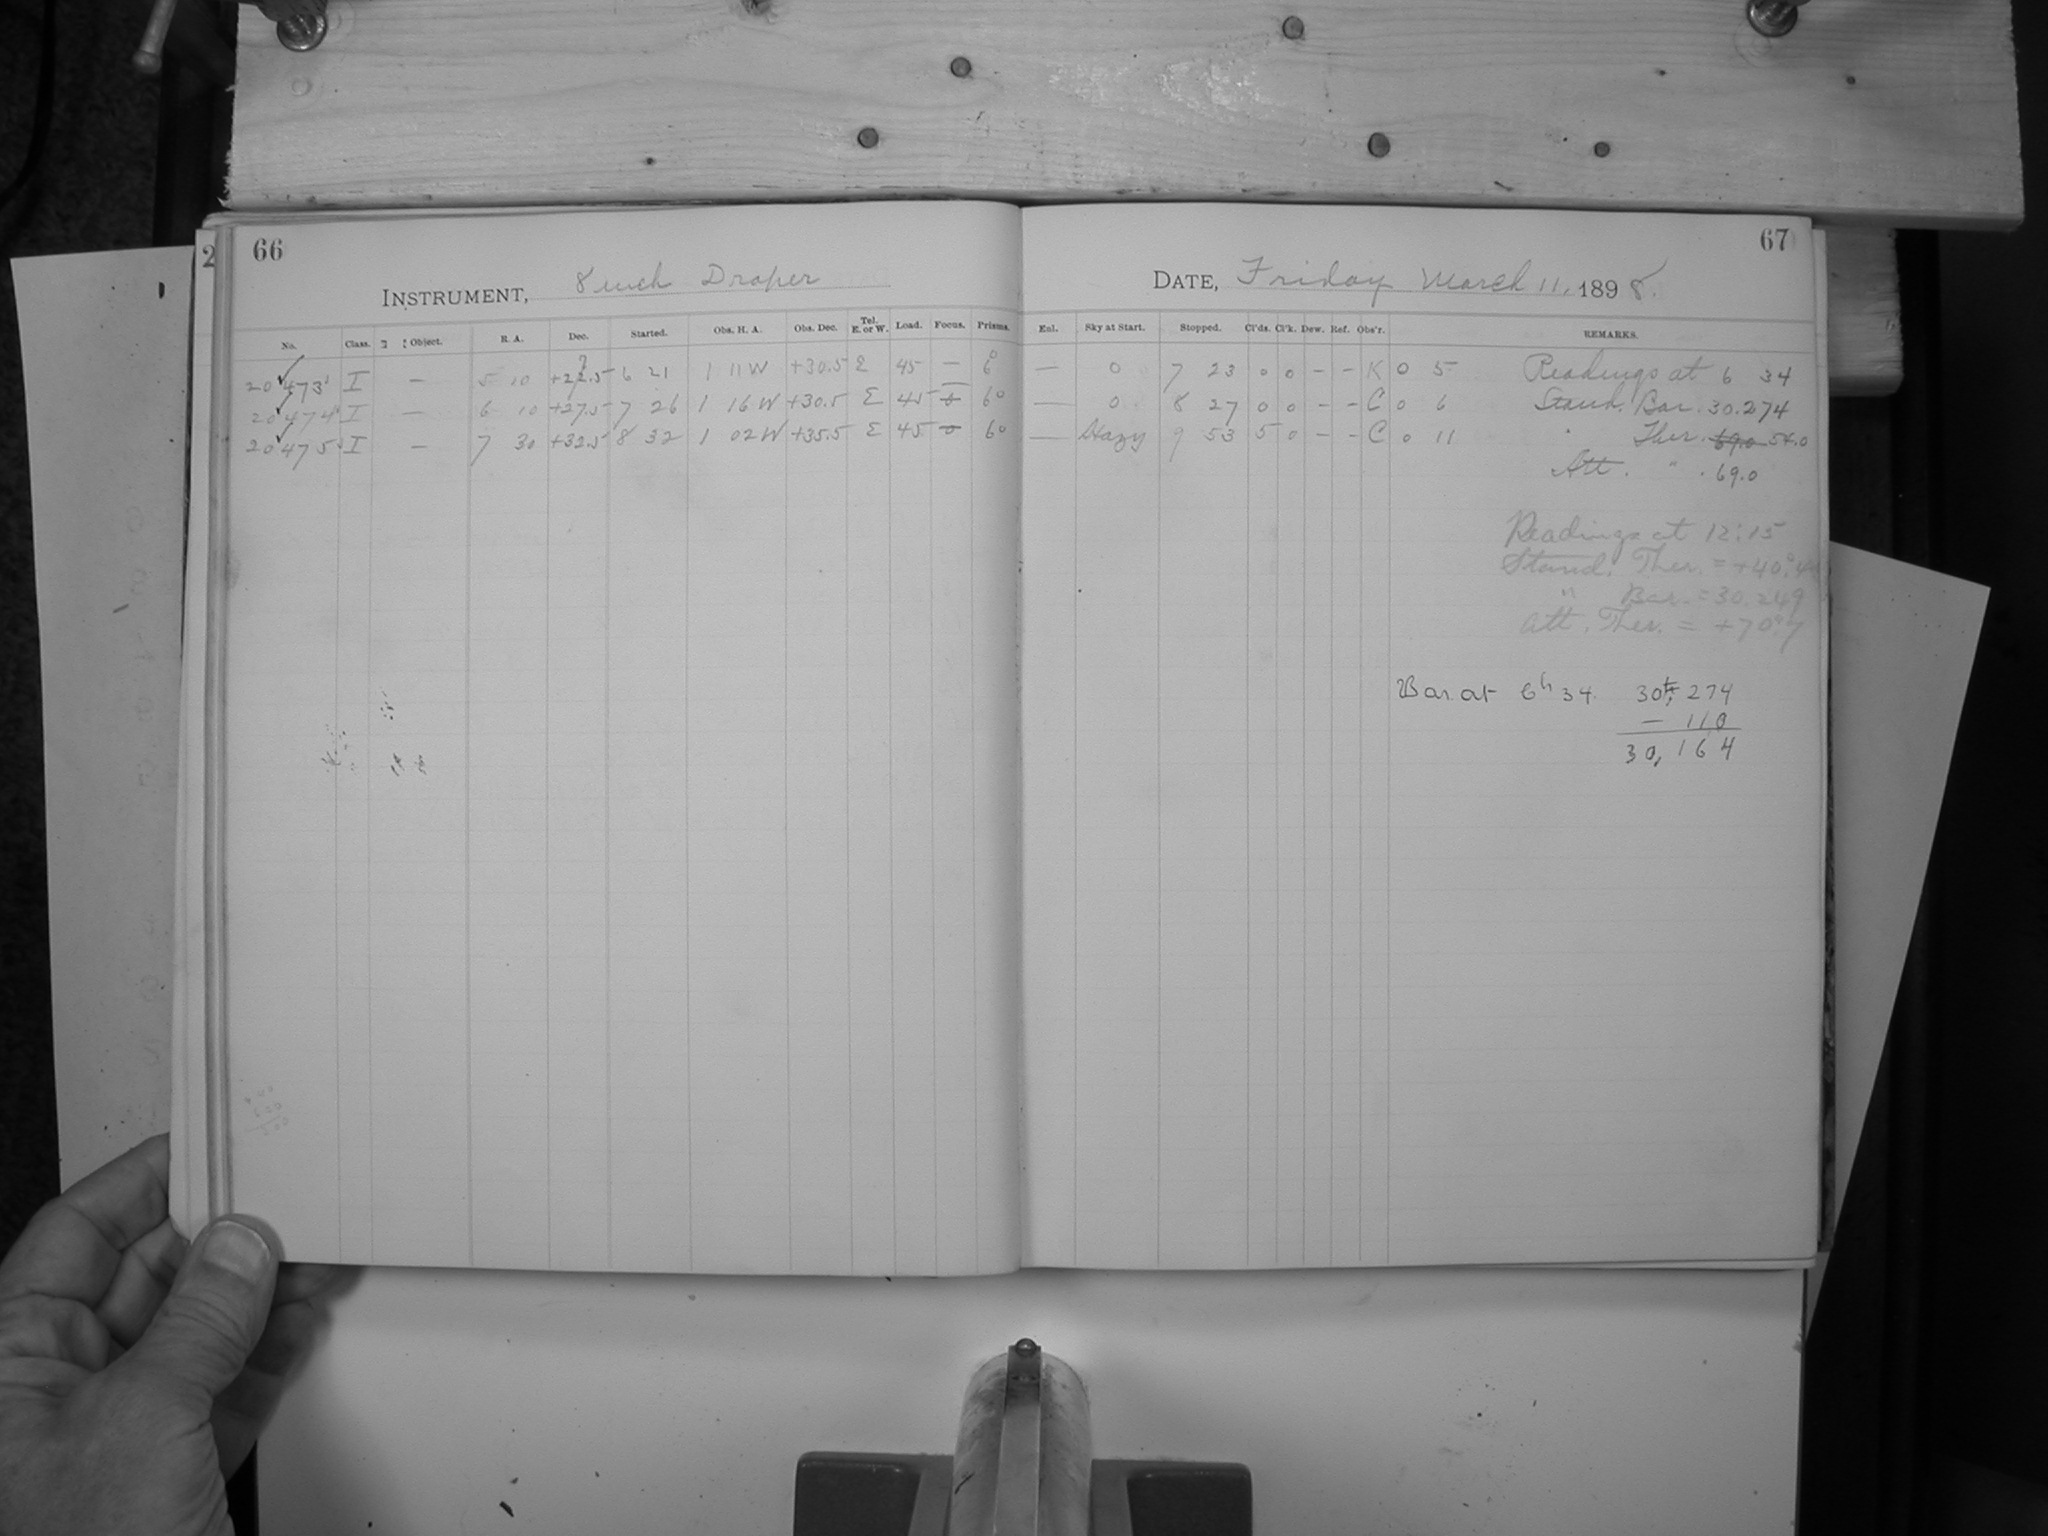 2
66
INSTRUMENT, 8 inch Draper
No. Class. Object. R. A. Dec. Started. Obs. H. A. Obs. Dec. Tel. E. or W. Load. Focus. Prisms.
20473 I — 5 10 +22.5 6 21 1 11 W +30.5 E 45 — 6
20474 I — 6 10 +27.5 7 26 1 16 W +30.5 E 45 0 60
20475 I — 7 30 +32.5 8 32 1 02 W +35.5 E 45 0 60
67
DATE, Friday March 11, 1898.
Enl. Sky at Start. Stopped. Cl'ds. Cl'k. Dew. Ref. Obs'r. REMARKS.
— 0 7 23 0 0 – – K 0 5 Readings at 6 34
— 0 8 27 0 0 – – C 0 6 Stand. Bar. 30.274
— Hazy 9 53 5 0 – – C 0 11 " Ther. 69.0 54.0
Att. " . 69.0
Readings at 12:15
Stand. Ther. = +40°.4
" Bar. = 30.249
Att. Ther. = +70°.7
Bar. at 6h 34 30, 274
— 110
30, 164